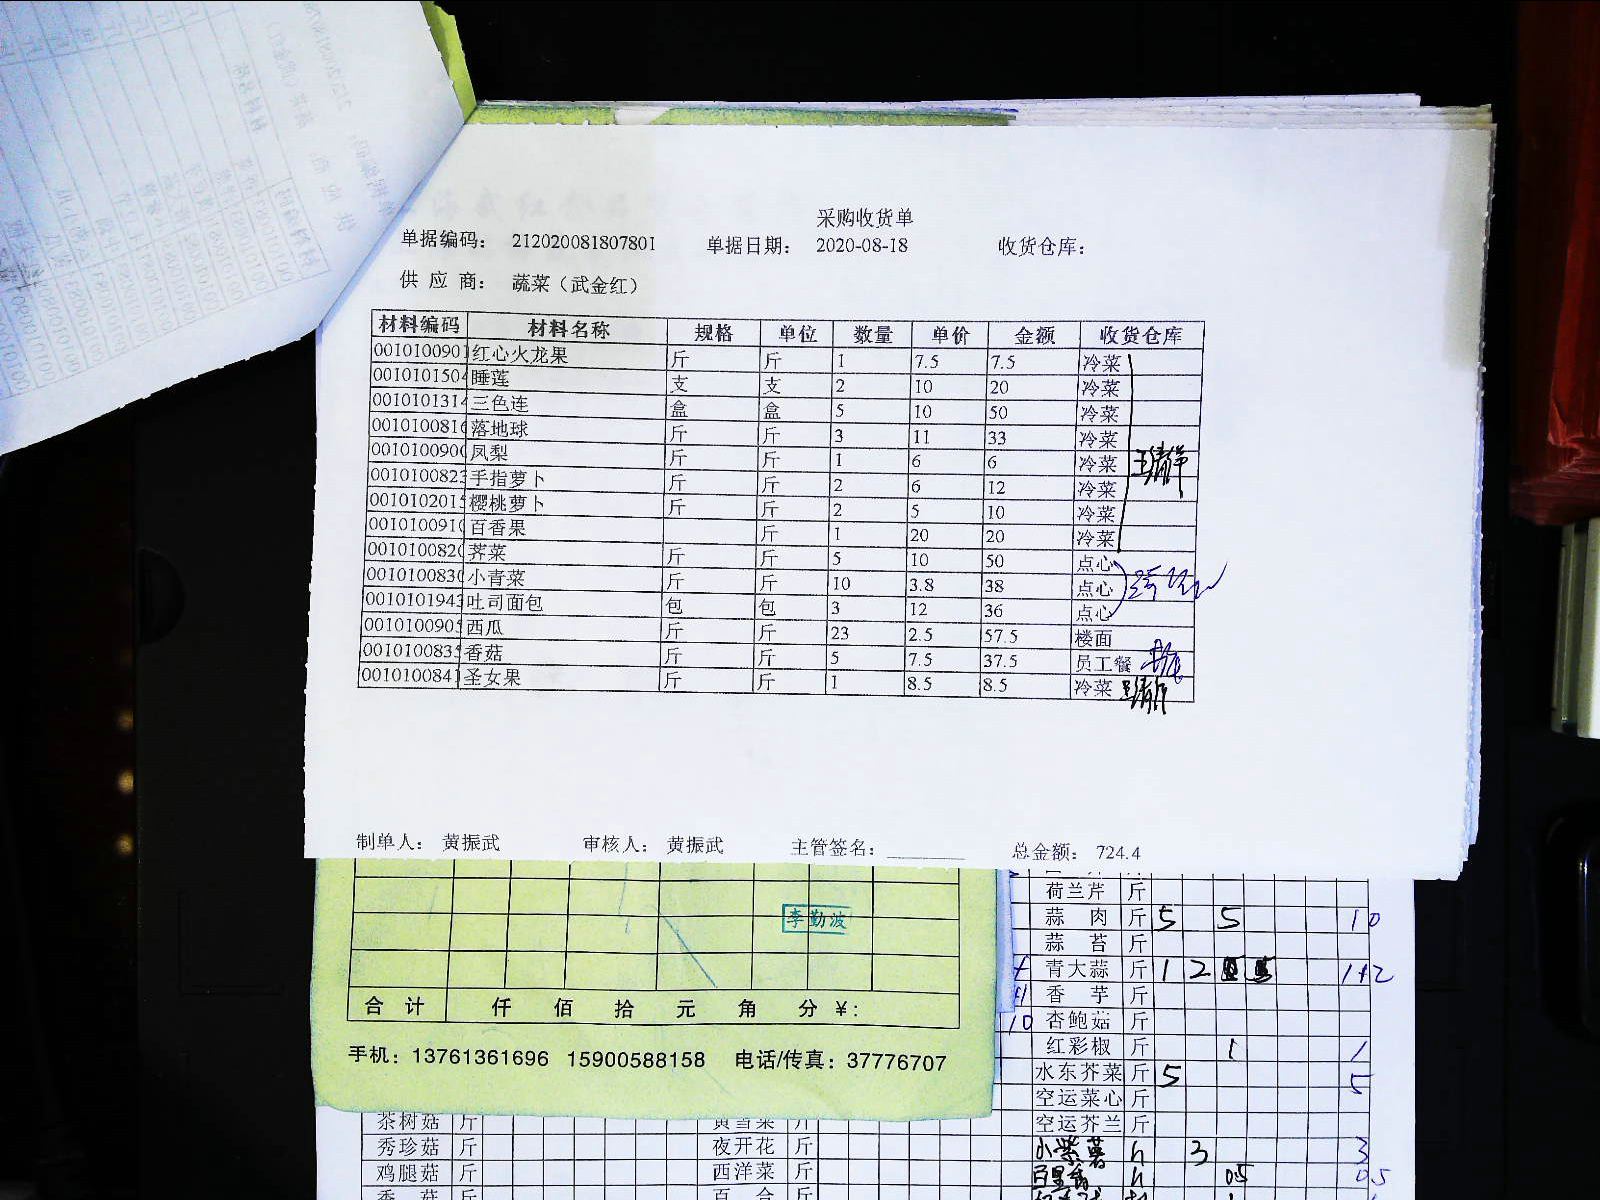 采购收货单
单据编码： 212020081807801 单据日期： 2020-08-18 收货仓库：
供 应 商： 蔬菜（武金红）
材料编码 材料名称 规格 单位 数量 单价 金额 收货仓库
0010100901 红心火龙果 斤 斤 1 7.5 7.5 冷菜
0010101504 睡莲 支 支 2 10 20 冷菜
0010101314 三色连 盒 盒 5 10 50 冷菜
0010100816 落地球 斤 斤 3 11 33 冷菜
0010100900 凤梨 斤 斤 1 6 6 冷菜
0010100823 手指萝卜 斤 斤 2 6 12 冷菜
0010102015 樱桃萝卜 斤 斤 2 5 10 冷菜
0010100910 百香果 斤 1 20 20 冷菜
0010100820 荠菜 斤 斤 5 10 50 点心
0010100830 小青菜 斤 斤 10 3.8 38 点心
0010101943 吐司面包 包 包 3 12 36 点心
0010100905 西瓜 斤 斤 23 2.5 57.5 楼面
0010100835 香菇 斤 斤 5 7.5 37.5 员工餐
0010100841 圣女果 斤 斤 1 8.5 8.5 冷菜
制单人： 黄振武 审核人： 黄振武 主管签名： 总金额： 724.4
李勤波
合 计 仟 佰 拾 元 角 分 ¥：
手机：13761361696 15900588158 电话/传真：37776707
荷兰芹 斤
蒜 肉 斤 5 5 10
蒜 苔 斤
青大蒜 斤 1 2 1+2
香 芋 斤
10 杏鲍菇 斤
红彩椒 斤 1 1
水东芥菜 斤 5 5
空运菜心 斤
空运芥兰 斤
茶树菇 斤 黄雪菜 斤
秀珍菇 斤 夜开花 斤 小紫薯 3 3
鸡腿菇 斤 西洋菜 斤 百里香 05 0.5
香 菇 斤 百 合 斤